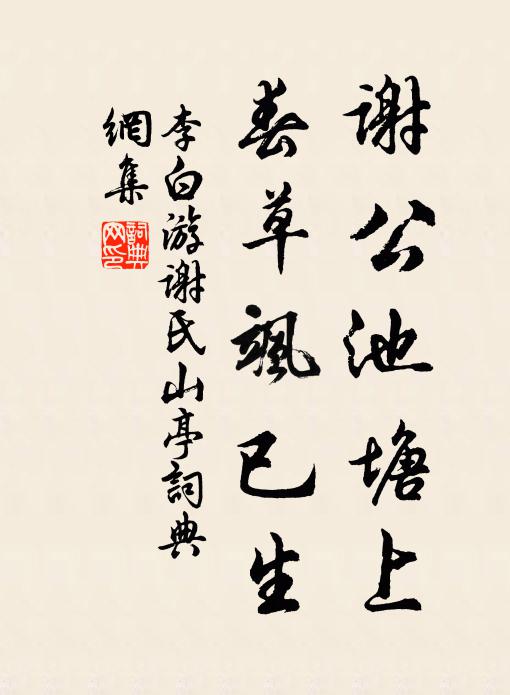 謝公池塘上
春草颯已生
李白游謝氏山亭詞典
網集
詞典網印